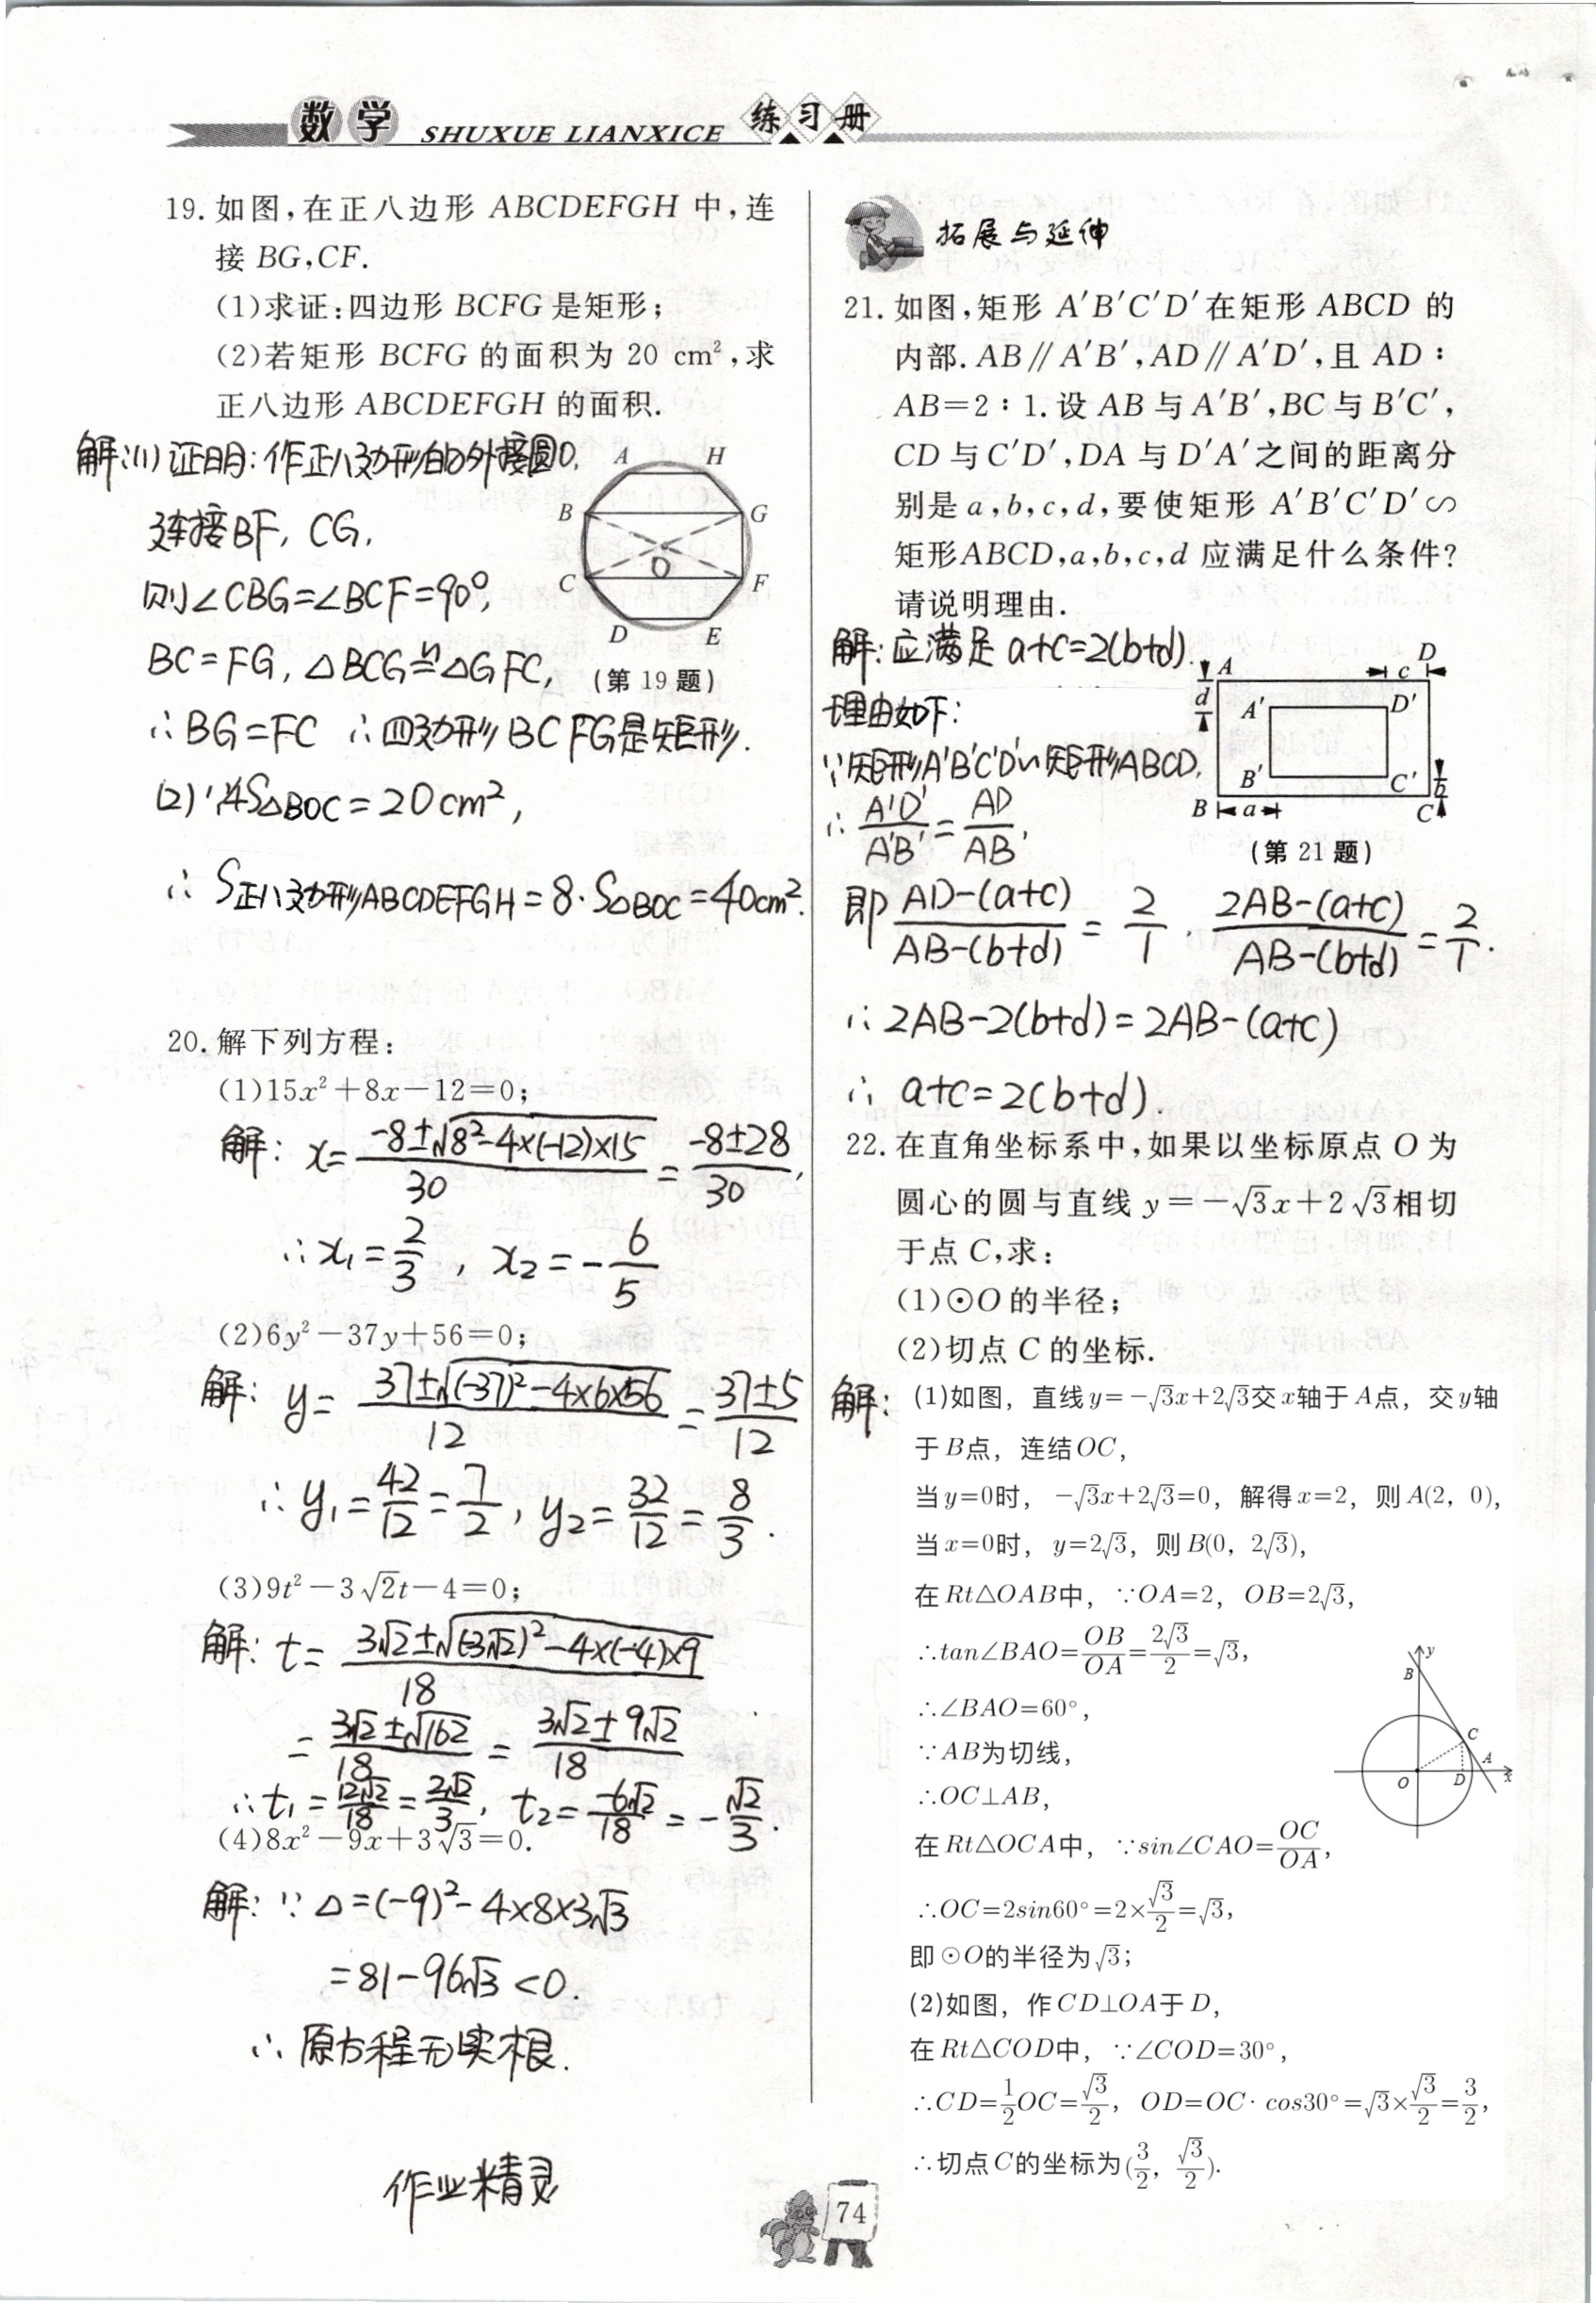 数学 SHUXUE LIANXICE 练习册
19. 如图,在正八边形 ABCDEFGH 中,连
接 BG,CF.
(1)求证:四边形 BCFG 是矩形;
(2)若矩形 BCFG 的面积为 20 cm²,求
正八边形 ABCDEFGH 的面积.
解:(1)证明:作正八边形的外接圆O,
连接BF, CG,
则∠CBG=∠BCF=90°,
BC=FG, △BCG≌△GFC,
∴BG=FC ∴四边形BCFG是矩形.
(2)∵4S△BOC=20cm²,
∴S正八边形ABCDEFGH=8·S△BOC=40cm².
A H
B G
O
C F
D E
(第 19 题)
20. 解下列方程:
(1)15x²+8x-12=0;
解: x=(-8±√(8²-4×(-12)×15))/30=(-8±28)/30,
∴x₁=2/3, x₂=-6/5
(2)6y²-37y+56=0;
解: y=(37±√((-37)²-4×6×56))/12=(37±5)/12
∴y₁=42/12=7/2, y₂=32/12=8/3.
(3)9t²-3√2t-4=0;
解: t=(3√2±√((-3√2)²-4×(-4)×9))/18
=(3√2±√162)/18=(3√2±9√2)/18
∴t₁=12√2/18=2√2/3, t₂=-6√2/18=-√2/3.
(4)8x²-9x+3√3=0.
解:∵△=(-9)²-4×8×3√3
=81-96√3<0.
∴原方程无实根.
作业精灵
拓展与延伸
21. 如图,矩形 A′B′C′D′在矩形 ABCD 的
内部. AB∥A′B′,AD∥A′D′,且 AD∶
AB=2∶1. 设 AB 与 A′B′,BC 与 B′C′,
CD 与 C′D′,DA 与 D′A′之间的距离分
别是 a,b,c,d,要使矩形 A′B′C′D′∽
矩形ABCD,a,b,c,d 应满足什么条件?
请说明理由.
解:应满足 a+c=2(b+d).
理由如下:
∵矩形A′B′C′D′∽矩形ABCD,
∴A′D′/A′B′=AD/AB,
A D
c
d
A′ D′
B′ C′
b
B a C
(第 21 题)
即(AD-(a+c))/(AB-(b+d))=2/1, (2AB-(a+c))/(AB-(b+d))=2/1.
∴2AB-2(b+d)=2AB-(a+c)
∴a+c=2(b+d).
22. 在直角坐标系中,如果以坐标原点 O 为
圆心的圆与直线 y=-√3x+2√3相切
于点 C,求:
(1)⊙O 的半径;
(2)切点 C 的坐标.
解: (1)如图，直线y=-√3x+2√3交x轴于A点，交y轴
于B点，连结OC，
当y=0时，-√3x+2√3=0，解得x=2，则A(2，0)，
当x=0时，y=2√3，则B(0，2√3)，
在Rt△OAB中，∵OA=2，OB=2√3，
∴tan∠BAO=OB/OA=2√3/2=√3，
∴∠BAO=60°，
∵AB为切线，
∴OC⊥AB，
在Rt△OCA中，∵sin∠CAO=OC/OA，
∴OC=2sin60°=2×√3/2=√3，
即⊙O的半径为√3；
(2)如图，作CD⊥OA于D，
在Rt△COD中，∵∠COD=30°，
∴CD=1/2OC=√3/2，OD=OC·cos30°=√3×√3/2=3/2，
∴切点C的坐标为(3/2，√3/2).
y
B
C
A
O D x
74